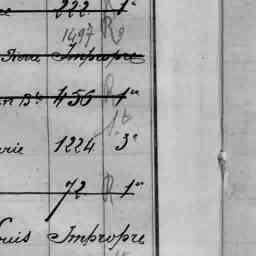 222 R 1e
1497 R9
Pierre Impropre
Bte 456 R 1er
1. b
rie 1224 3e
72 R 1er
ouis Impropre